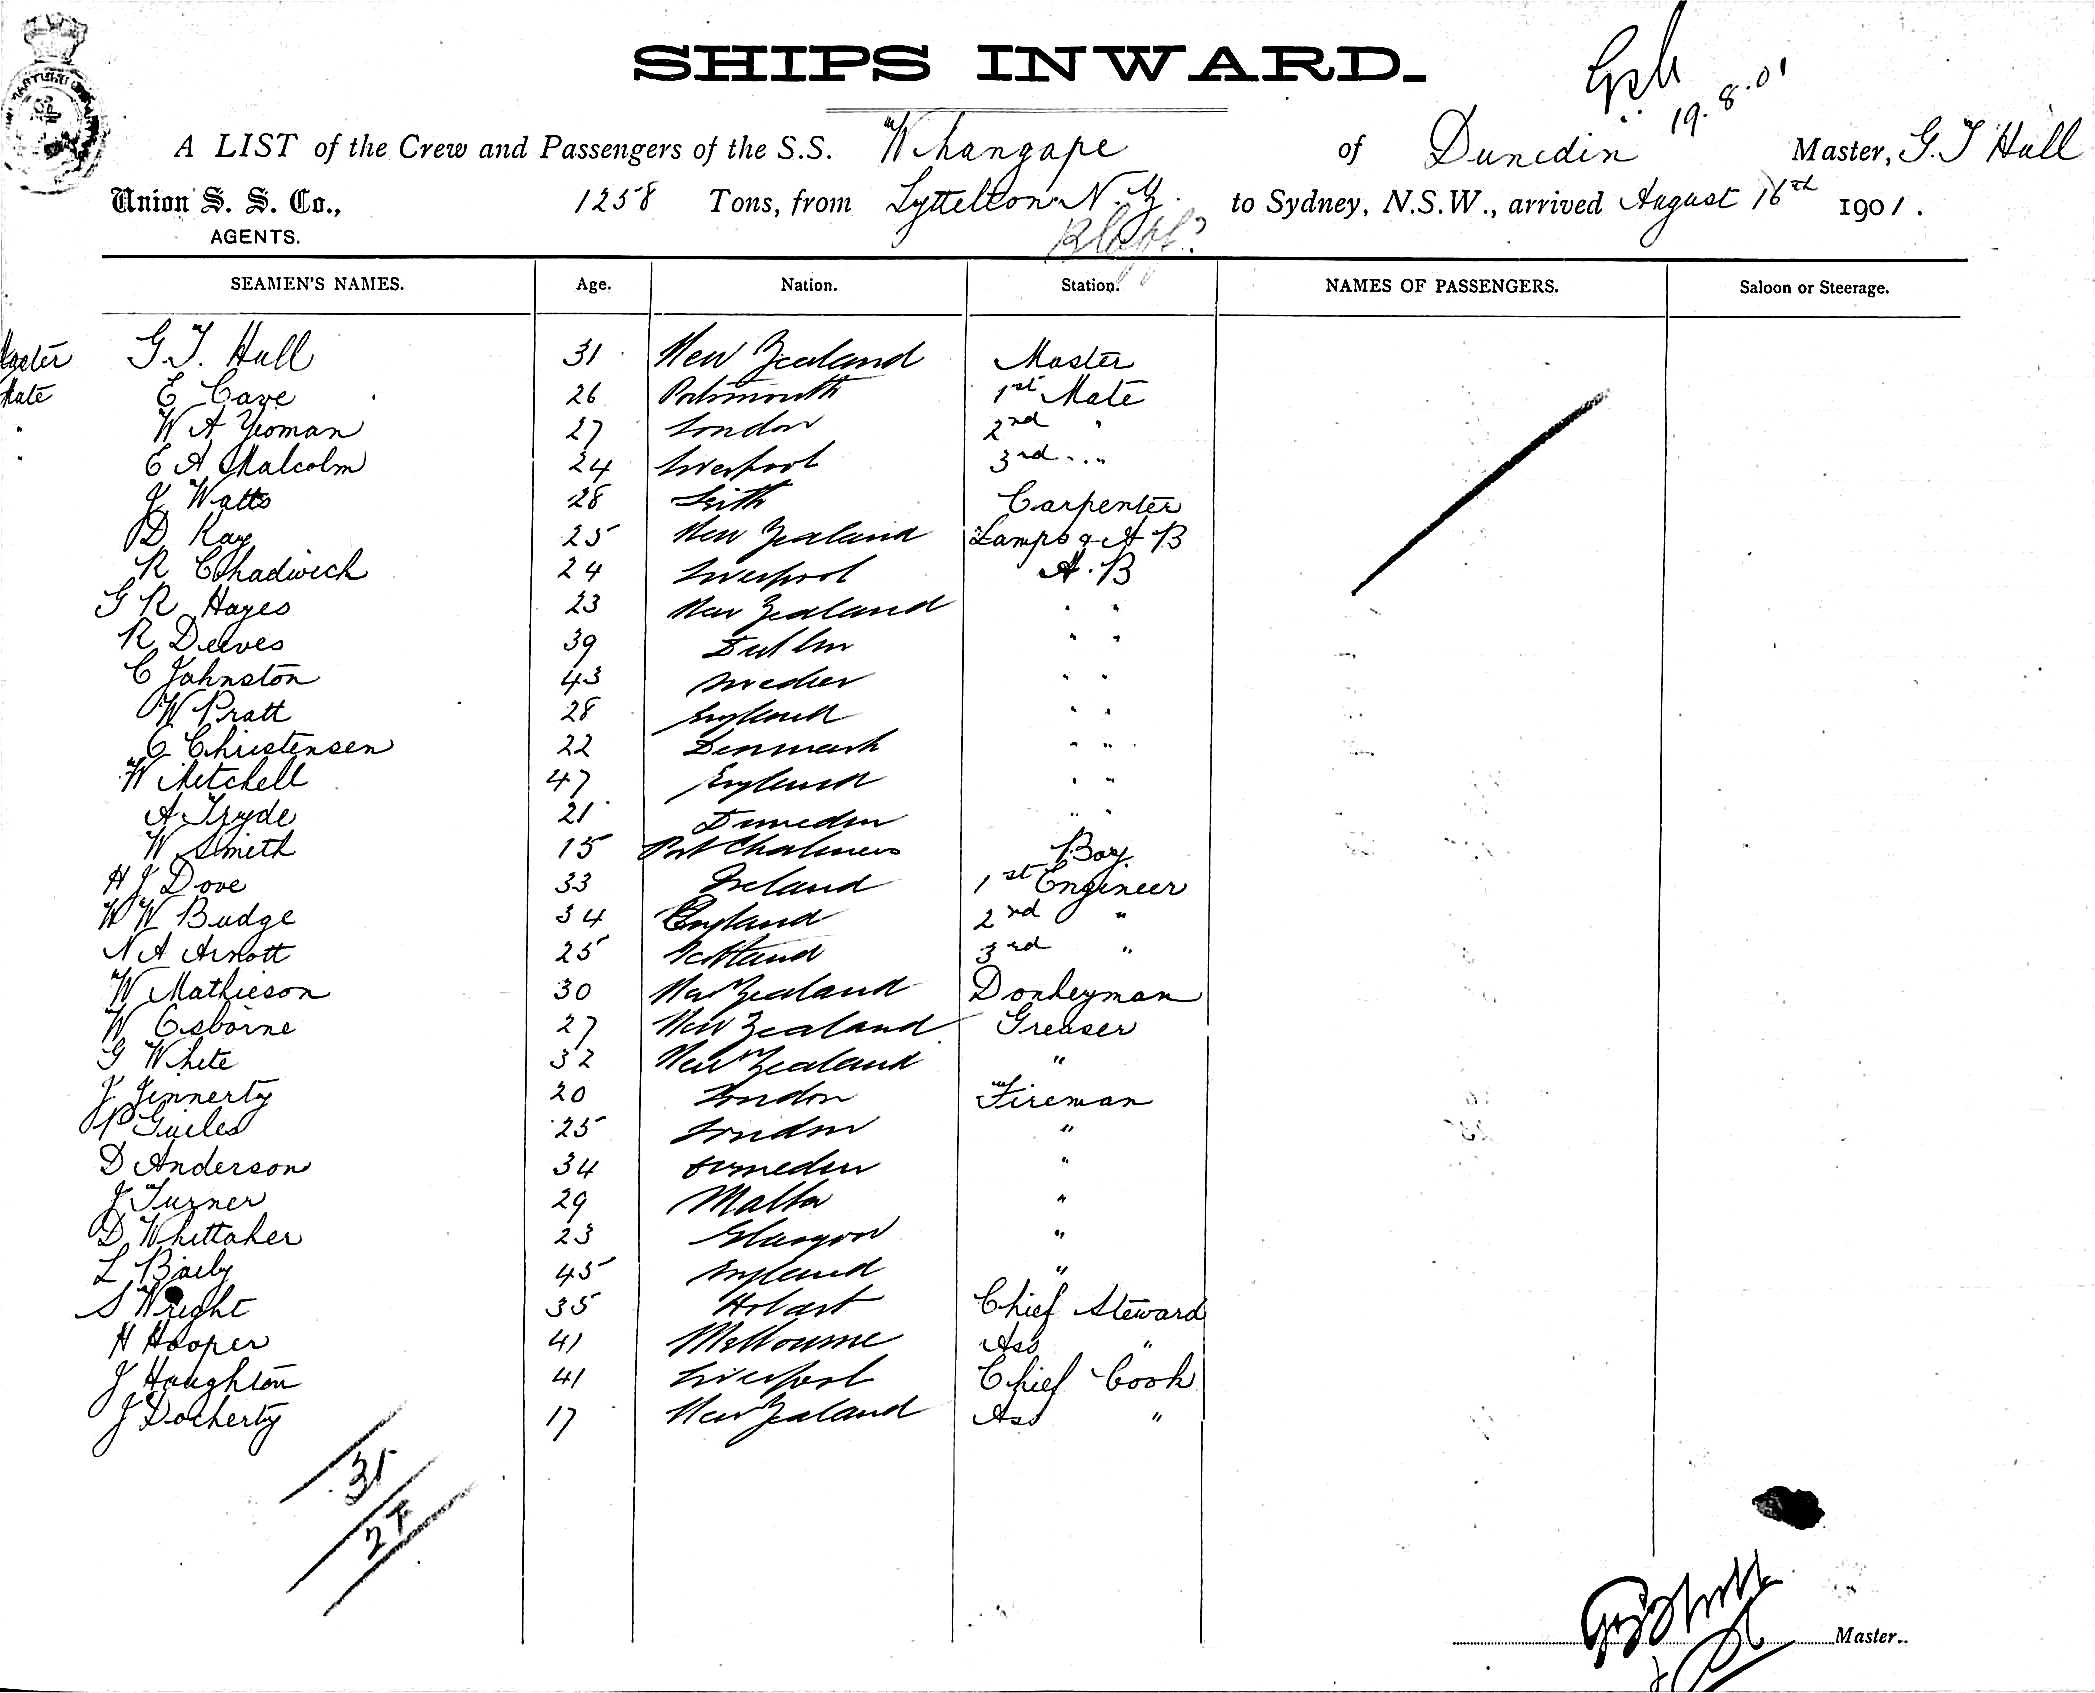 SHIPS INWARD.
19.8.01
A LIST of the Crew and Passengers of the S.S. Whangape of Dunedin Master, G. T Hull
Union S. S. Co., 1258 Tons, from Lyttelton N. Z. to Sydney, N.S.W., arrived August 16th 1901.
AGENTS.
SEAMEN'S NAMES. Age. Nation. Station. NAMES OF PASSENGERS. Saloon or Steerage.
Master G. T. Hull 31 New Zealand Master
Mate E Cave 26 Portsmouth 1st Mate
" W A Yeoman 27 London 2nd "
" E A Malcolm 24 Liverpool 3rd "
J Watts 28 Leith Carpenter
D Kay 25 New Zealand Lamps & A B
R Chadwick 24 Liverpool A. B
G R Hayes 23 New Zealand " "
R Deeves 39 Dublin " "
C Johnston 43 Sweden " "
W Pratt 28 England " "
C Christensen 22 Denmark " "
W Mitchell 47 England " "
A Tryde 21 Dunedin " "
W Smith 15 Port Chalmers Boy
H J Dove 33 Ireland 1st Engineer
W W Budge 34 England 2nd "
N A Arnott 25 Scotland 3rd "
W Mathieson 30 New Zealand Donkeyman
W Osborne 27 New Zealand Greaser
G White 32 New Zealand "
J Finnerty 20 London Fireman
P Guiles 25 London "
D Anderson 34 "
J Turner 29 Malta "
D Whittaker 23 Glasgow "
L Baily 45 England "
S Wright 35 Hobart Chief Steward
H Hooper 41 Melbourne Ass "
J Houghton 41 Liverpool Chief Cook
J Docherty 17 New Zealand Ass "
31
24
Master..